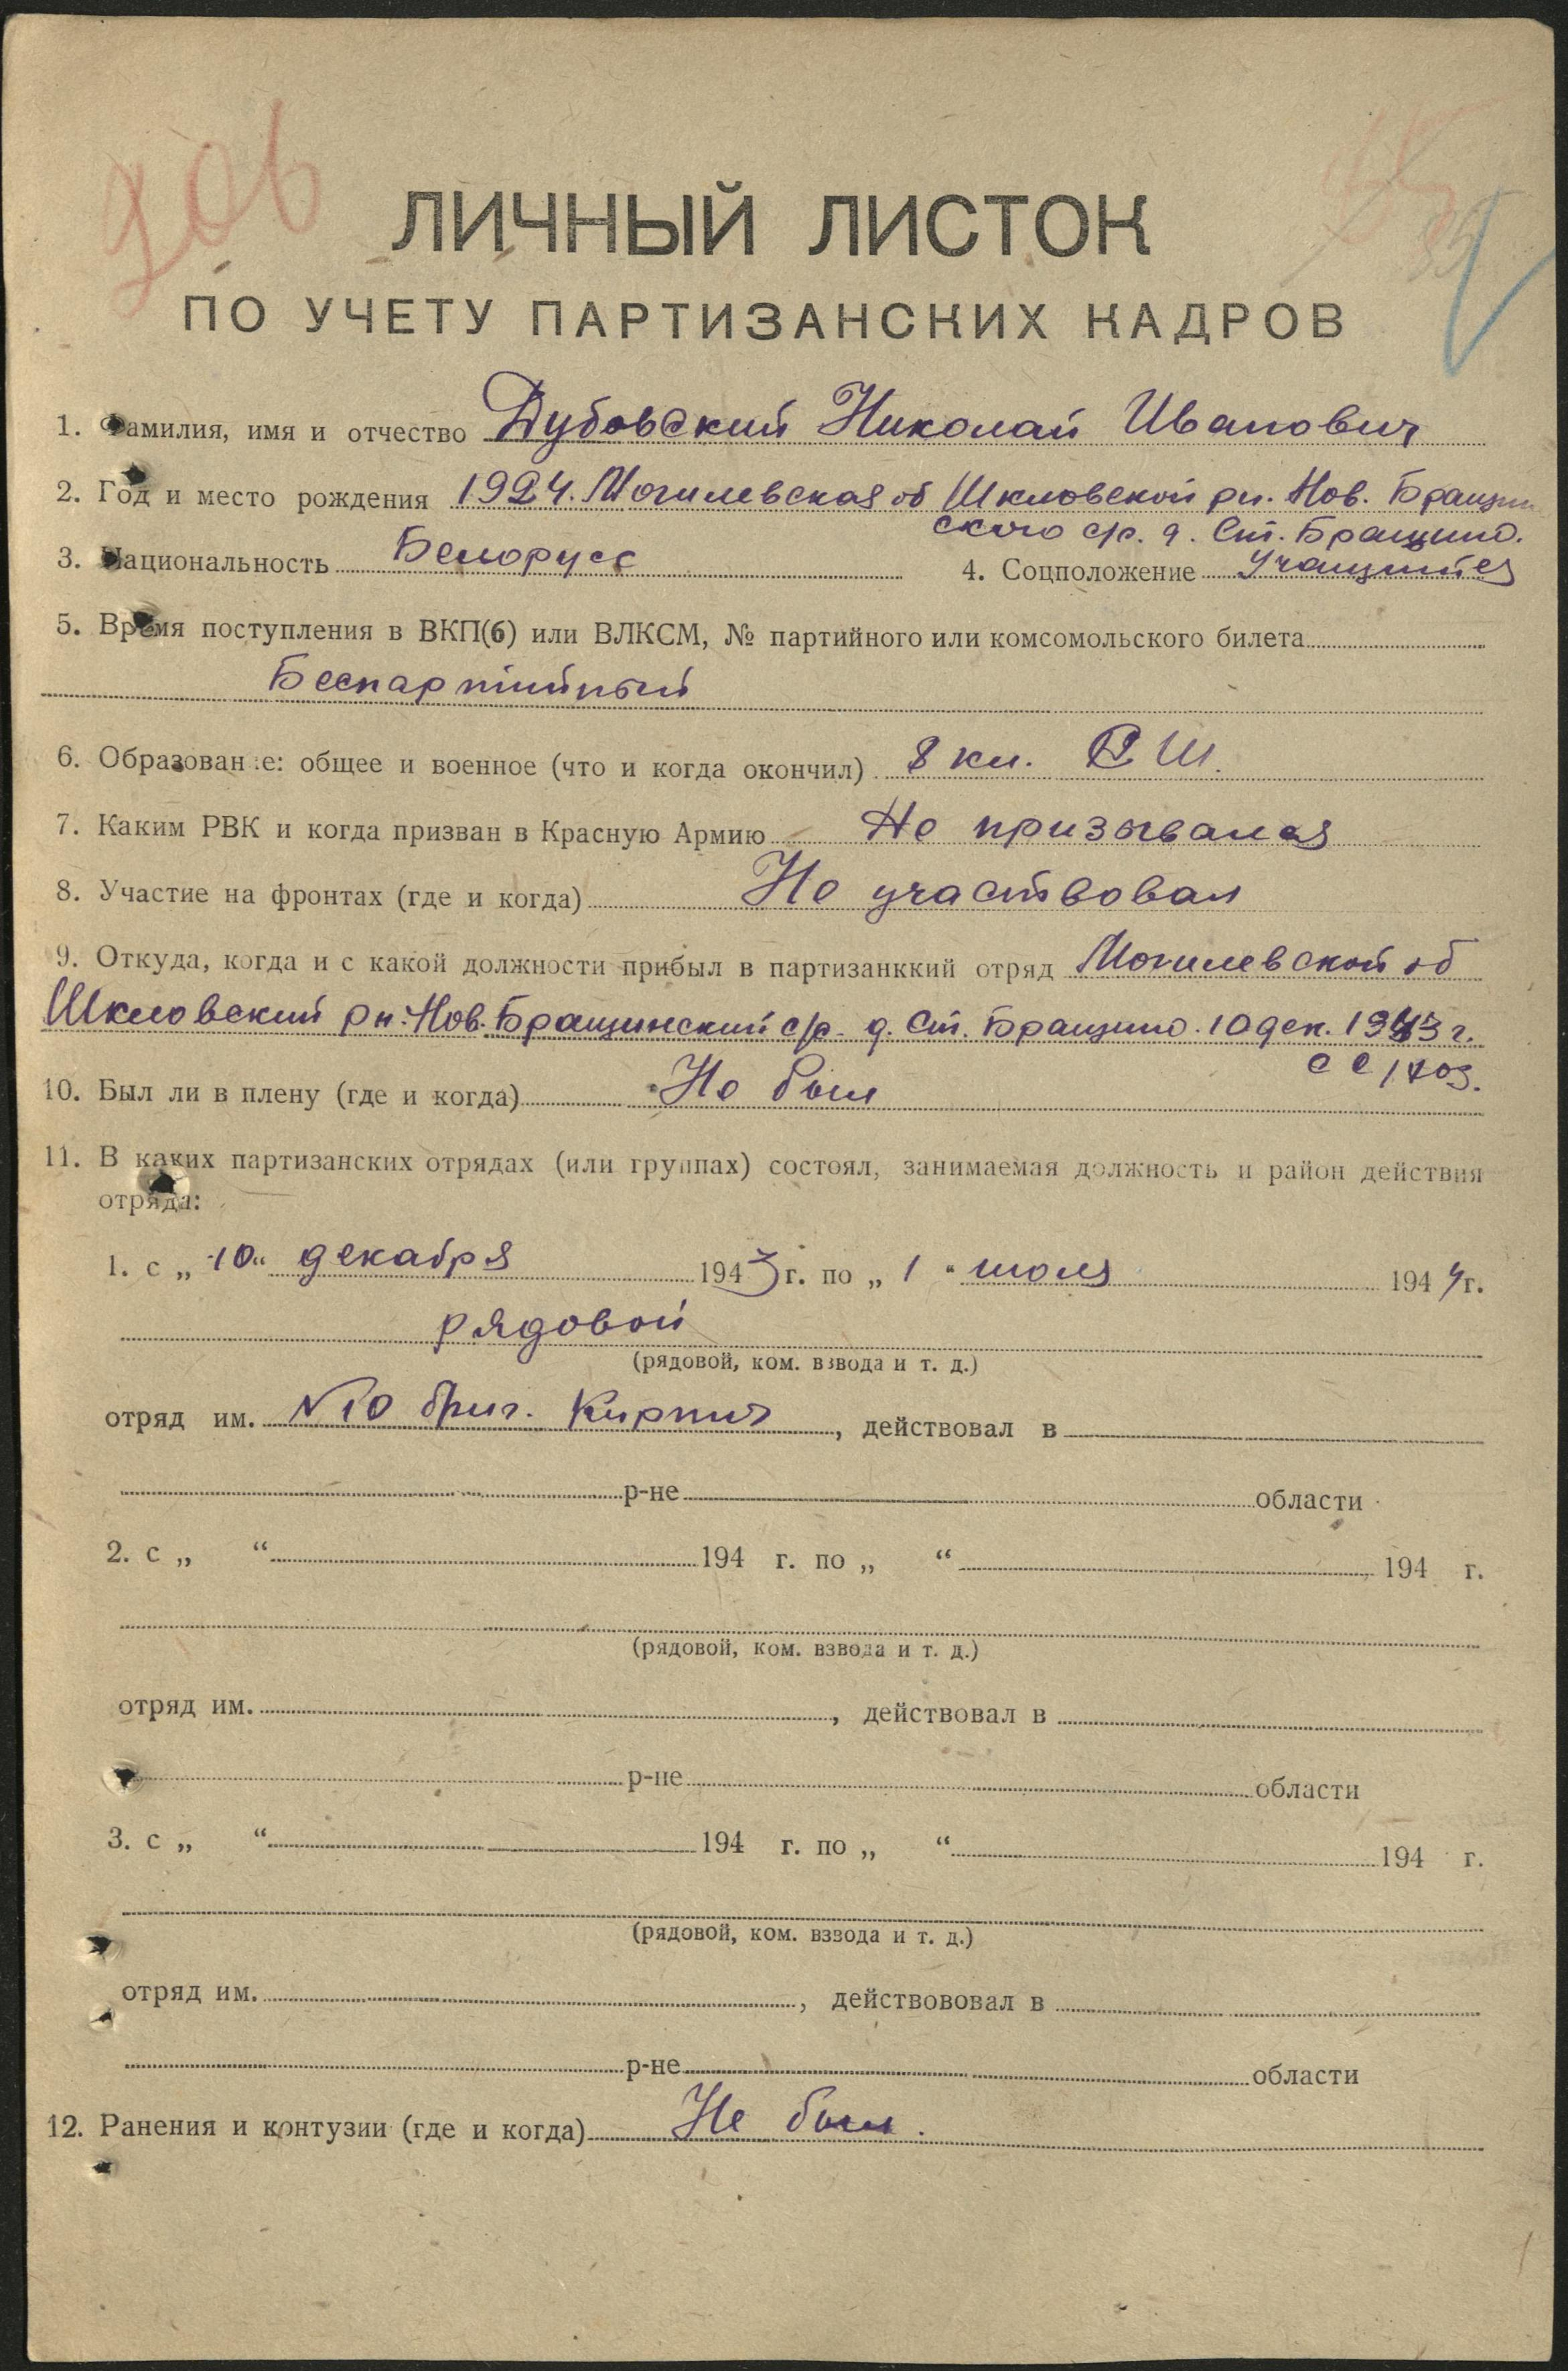 дов
35
ЛИЧНЫЙ ЛИСТОК
ПО УЧЕТУ ПАРТИЗАНСКИХ КАДРОВ
1. Фамилия, имя и отчество Дубовский Николай Иванович
2. Год и место рождения 1924. Могилевская об Шкловской рн. Нов. Бращин
ского с/с. д. Ст. Бращино.
3. Национальность Белорусс 4. Соцположение Учащийся
5. Время поступления в ВКП(б) или ВЛКСМ, № партийного или комсомольского билета
Беспартийный
6. Образование: общее и военное (что и когда окончил) 8 кл. СШ.
7. Каким РВК и когда призван в Красную Армию Не призывался
8. Участие на фронтах (где и когда) Не участвовал
9. Откуда, когда и с какой должности прибыл в партизанккий отряд Могилевской об
Шкловский рн. Нов. Бращинский с/с. д. Ст. Бращино. 10 дек. 1943 г.
10. Был ли в плену (где и когда) Не был
11. В каких партизанских отрядах (или группах) состоял, занимаемая должность и район действия
отряда:
1. с „ 10 “ декабря 1943 г. по „ 1 “ июля 1944 г.
рядовой
(рядовой, ком. взвода и т. д.)
отряд им. №10 бриг. Кирпич, действовал в
р-не области
2. с „ “ 194 г. по „ “ 194 г.
(рядовой, ком. взвода и т. д.)
отряд им. , действовал в
р-не области
3. с „ “ 194 г. по „ “ 194 г.
(рядовой, ком. взвода и т. д.)
отряд им. , действововал в
р-не области
12. Ранения и контузии (где и когда) Не был.